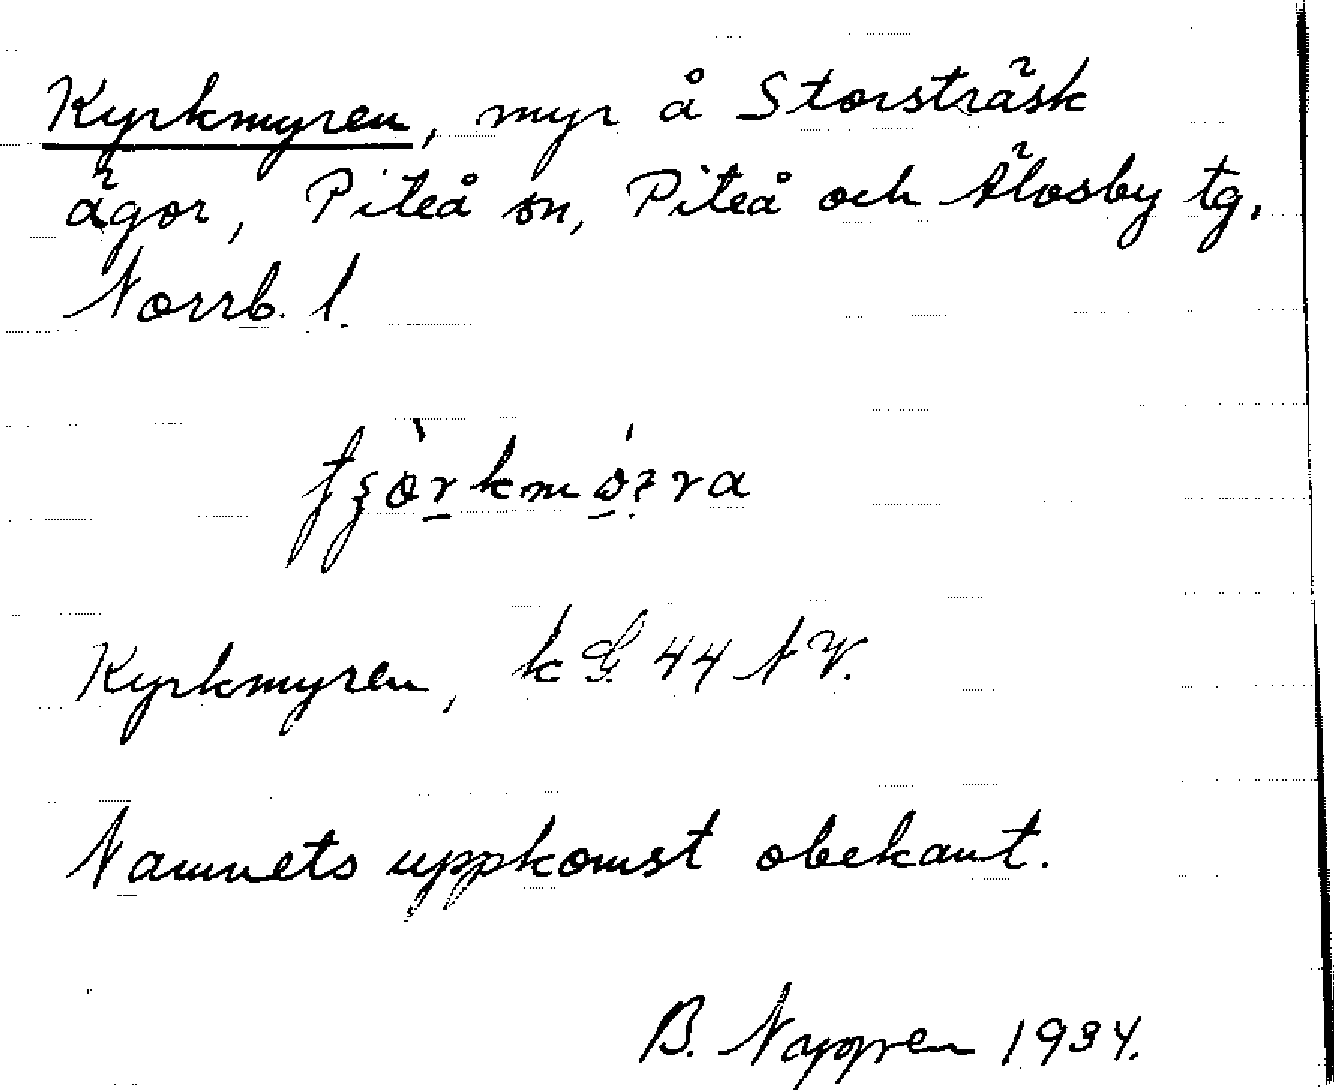 Kyrkmyren, myr å Storsträsk
ägor, Piteå sn, Piteå och Älvsby tg,
Norrb. l.
Kyrkmyren, k G. 44 NV.
Namnets uppkomst obekant.
B. Nappren 1934.